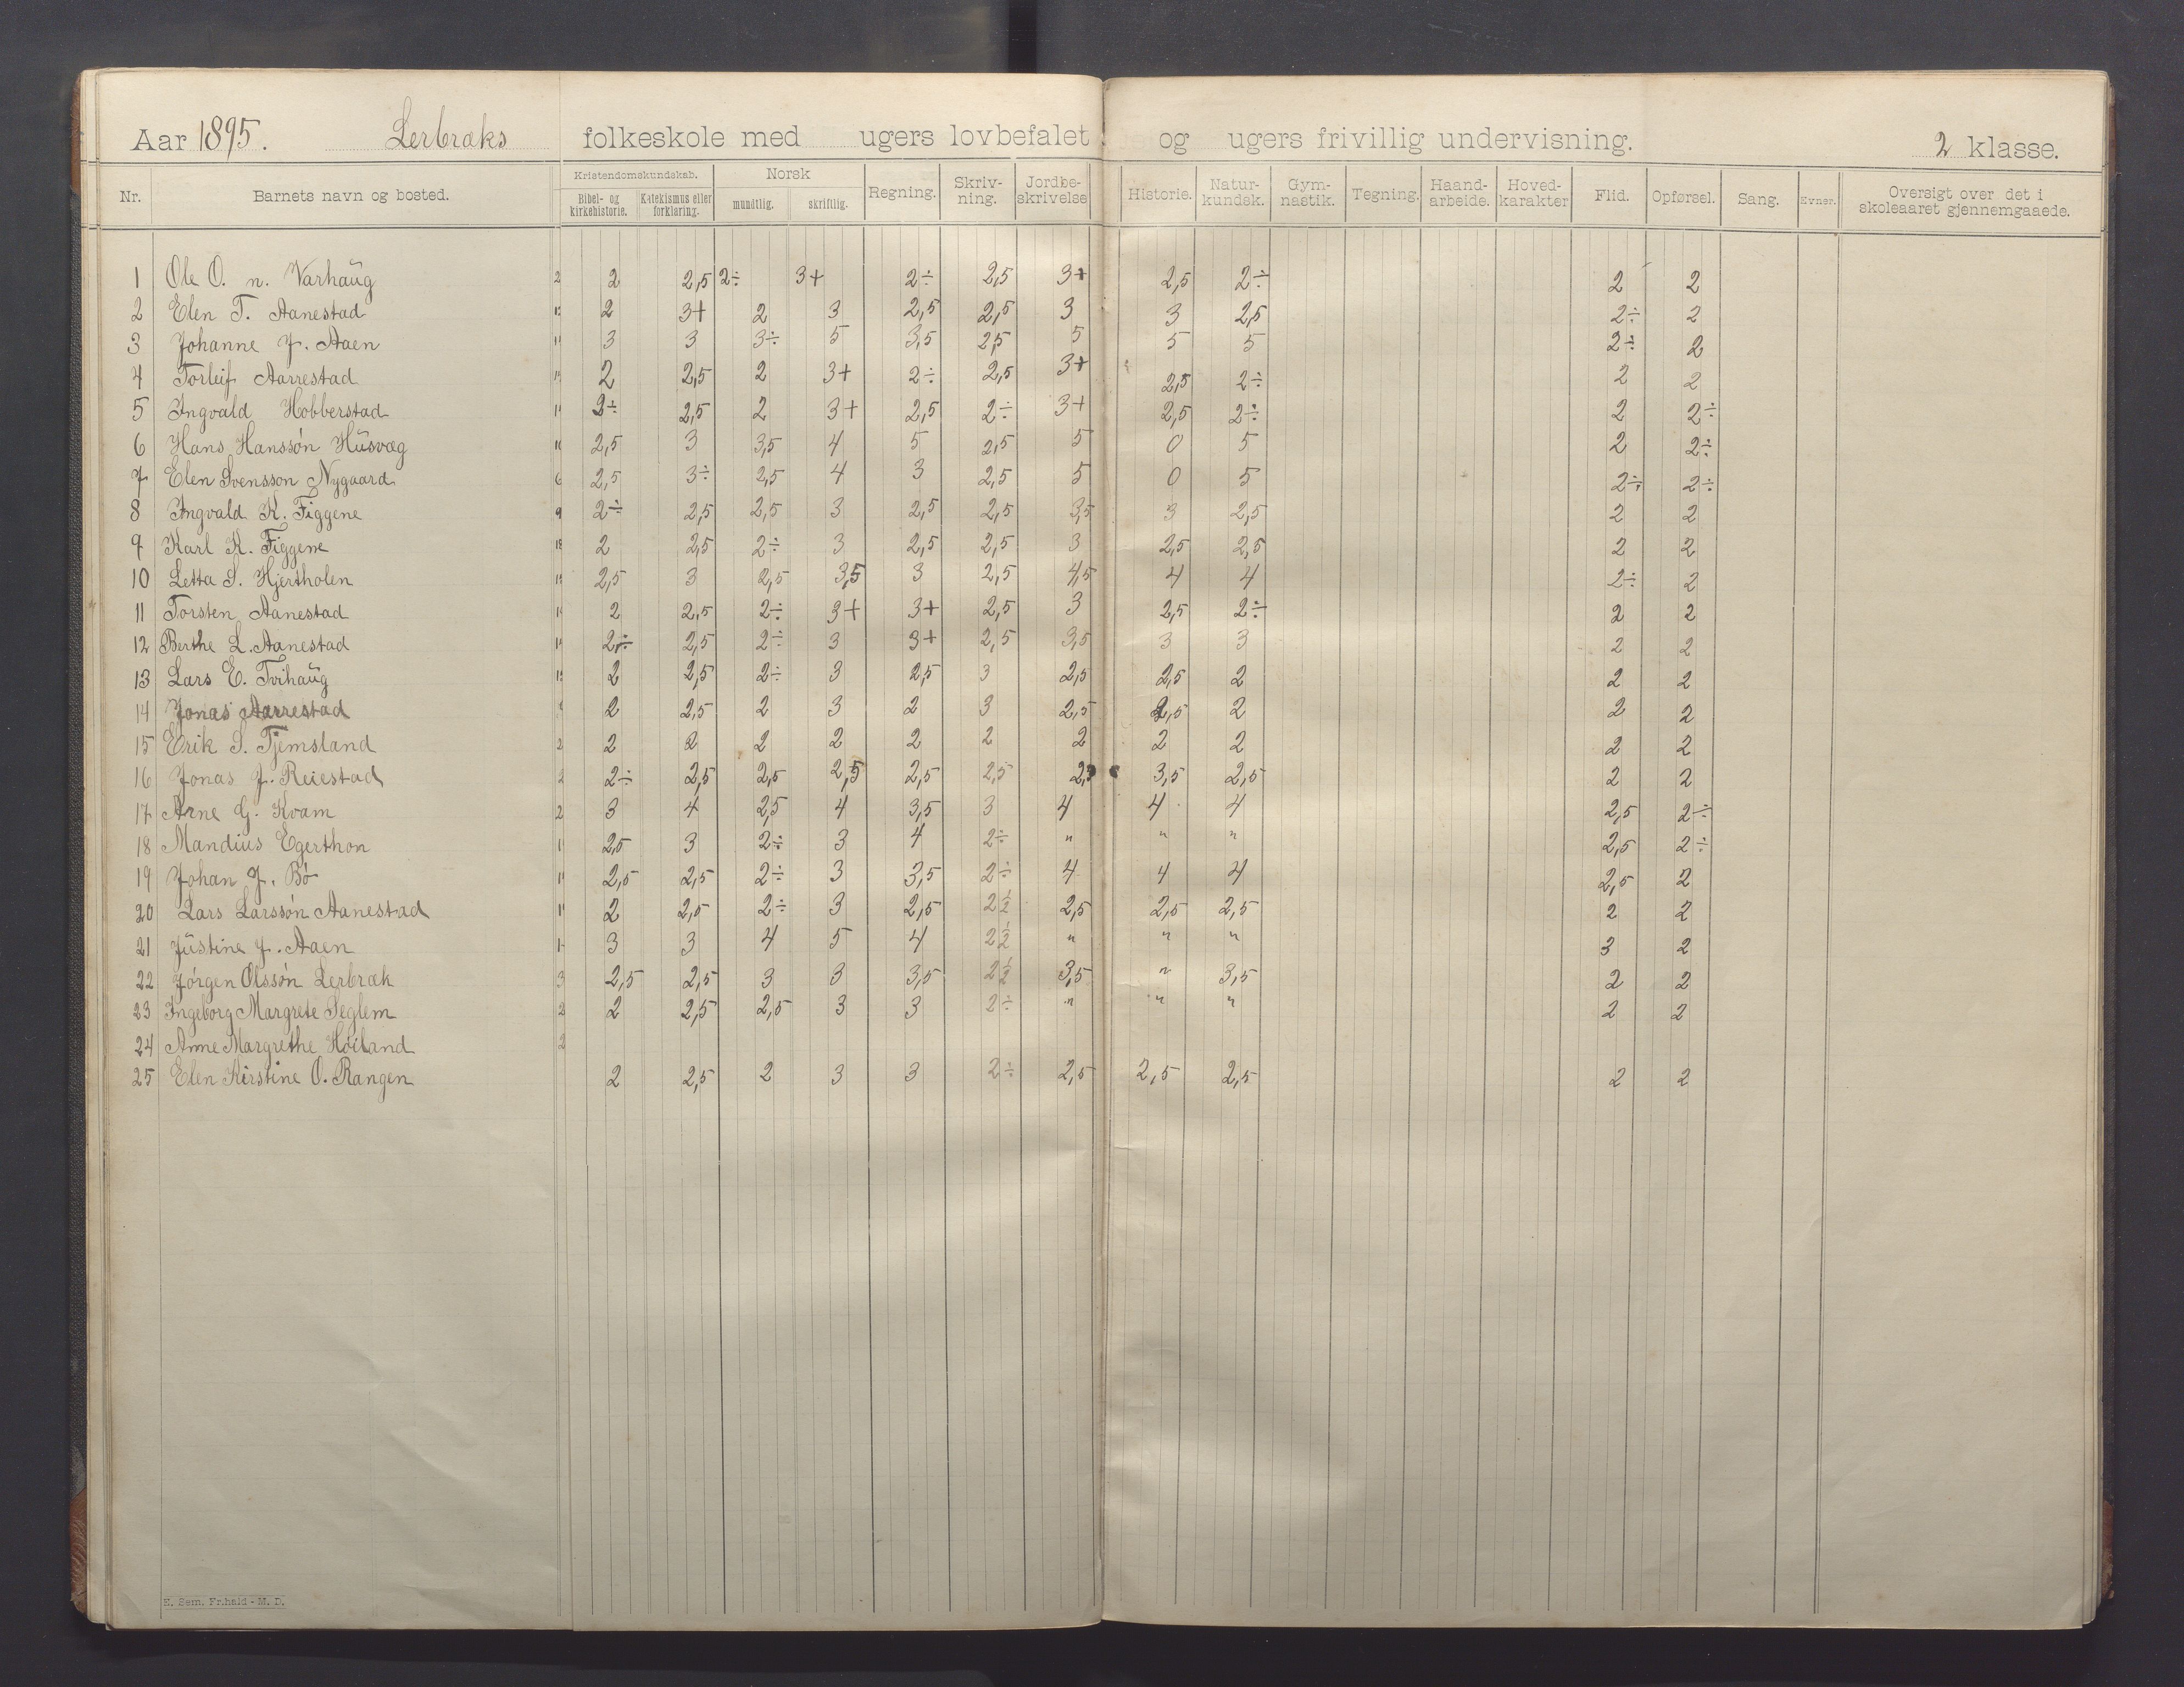 Aar 1895. Lerbræks folkeskole med ugers lovbefalet og ugers frivillig undervisning. 2 klasse.
Nr. Barnets navn og bosted. Kristendomskundskab. Bibel- og kirkehistorie. Katekismus eller forklaring. Norsk mundtlig. skriftlig. Regning. Skriv- ning. Jordbe- skrivelse Historie. Natur- kundsk. Gym- nastik. Tegning. Haand- arbeide. Hoved- karakter Flid. Opførsel. Sang. Evner. Oversigt over det i skoleaaret gjennemgaaede.
1 Ole O. n. Varhaug 2 2 2,5 2÷ 3+ 2÷ 2,5 3+ 2,5 2÷ 2 2
2 Elen T. Aanestad 2 3+ 2 3 2,5 2,5 3 3 2,5 2÷ 2
3 Johanne J. Aaen 3 3 3÷ 5 3,5 2,5 5 5 5 2÷ 2
4 Torleif Aarrestad 2 2,5 2 3+ 2÷ 2,5 3+ 2,5 2÷ 2 2
5 Ingvald Hobberstad 2÷ 2,5 2 3+ 2,5 2÷ 3+ 2,5 2÷ 2 2÷
6 Hans Hanssón Husvæg 2,5 3 3,5 4 5 2,5 5 0 5 2 2÷
7 Elen Svensson Nygaard 6 2,5 3÷ 2,5 4 3 2,5 5 0 5 2÷ 2÷
8 Ingvald K. Figgene 9 2÷ 2,5 2,5 3 2,5 2,5 3,5 3 2,5 2 2
9 Karl K. Figgene 18 2 2,5 2÷ 3 2,5 2,5 3 2,5 2,5 2 2
10 Letta S. Hjertholen 2,5 3 2,5 3,5 3 2,5 4,5 4 4 2÷ 2
11 Torsten Aanestad 2 2,5 2÷ 3+ 3+ 2,5 3 2,5 2÷ 2 2
12 Berthe L. Aanestad 2÷ 2,5 2÷ 3 3+ 2,5 3,5 3 3 2 2
13 Lars E. Tvihaug 2 2,5 2÷ 3 2,5 3 2,5 2,5 2 2 2
14 Jonas Aarrestad 2 2,5 2 3 2 3 2,5 2,5 2 2 2
15 Erik S. Tjemsland 2 2 2 2 2 2 2 2 2 2 2 2
16 Jonas J. Reiestad 2 2÷ 2,5 2,5 2,5 2,5 2,5 3,5 2,5 2 2
17 Arne G. Kvam 2 3 4 2,5 4 3,5 3 4 4 4 2,5 2÷
18 Mandius Egerthon 2,5 3 2÷ 3 4 2÷ " " " 2,5 2÷
19 Johan J. Bó 2,5 2,5 2÷ 3 3,5 2÷ 4 4 4 2,5 2
20 Lars Larssón Aanestad 2 2,5 2÷ 3 2,5 2½ 2,5 2,5 2,5 2 2
21 Justine J. Aaen 3 3 4 5 4 2½ " " " 3 2
22 Jórgen Olssón Lerbræk 3 2,5 2,5 3 3 3,5 2½ 3,5 " 3,5 2 2
23 Ingeborg Margrete Seglem 2 2 2,5 2,5 3 3 2÷ " " " 2 2
24 Anne Margrethe Hóiland 2
25 Elen Kirstine O. Rangen 2 2,5 2 3 3 2÷ 2,5 2,5 2,5 2 2
E. Sem. Fr.hald - M. D.